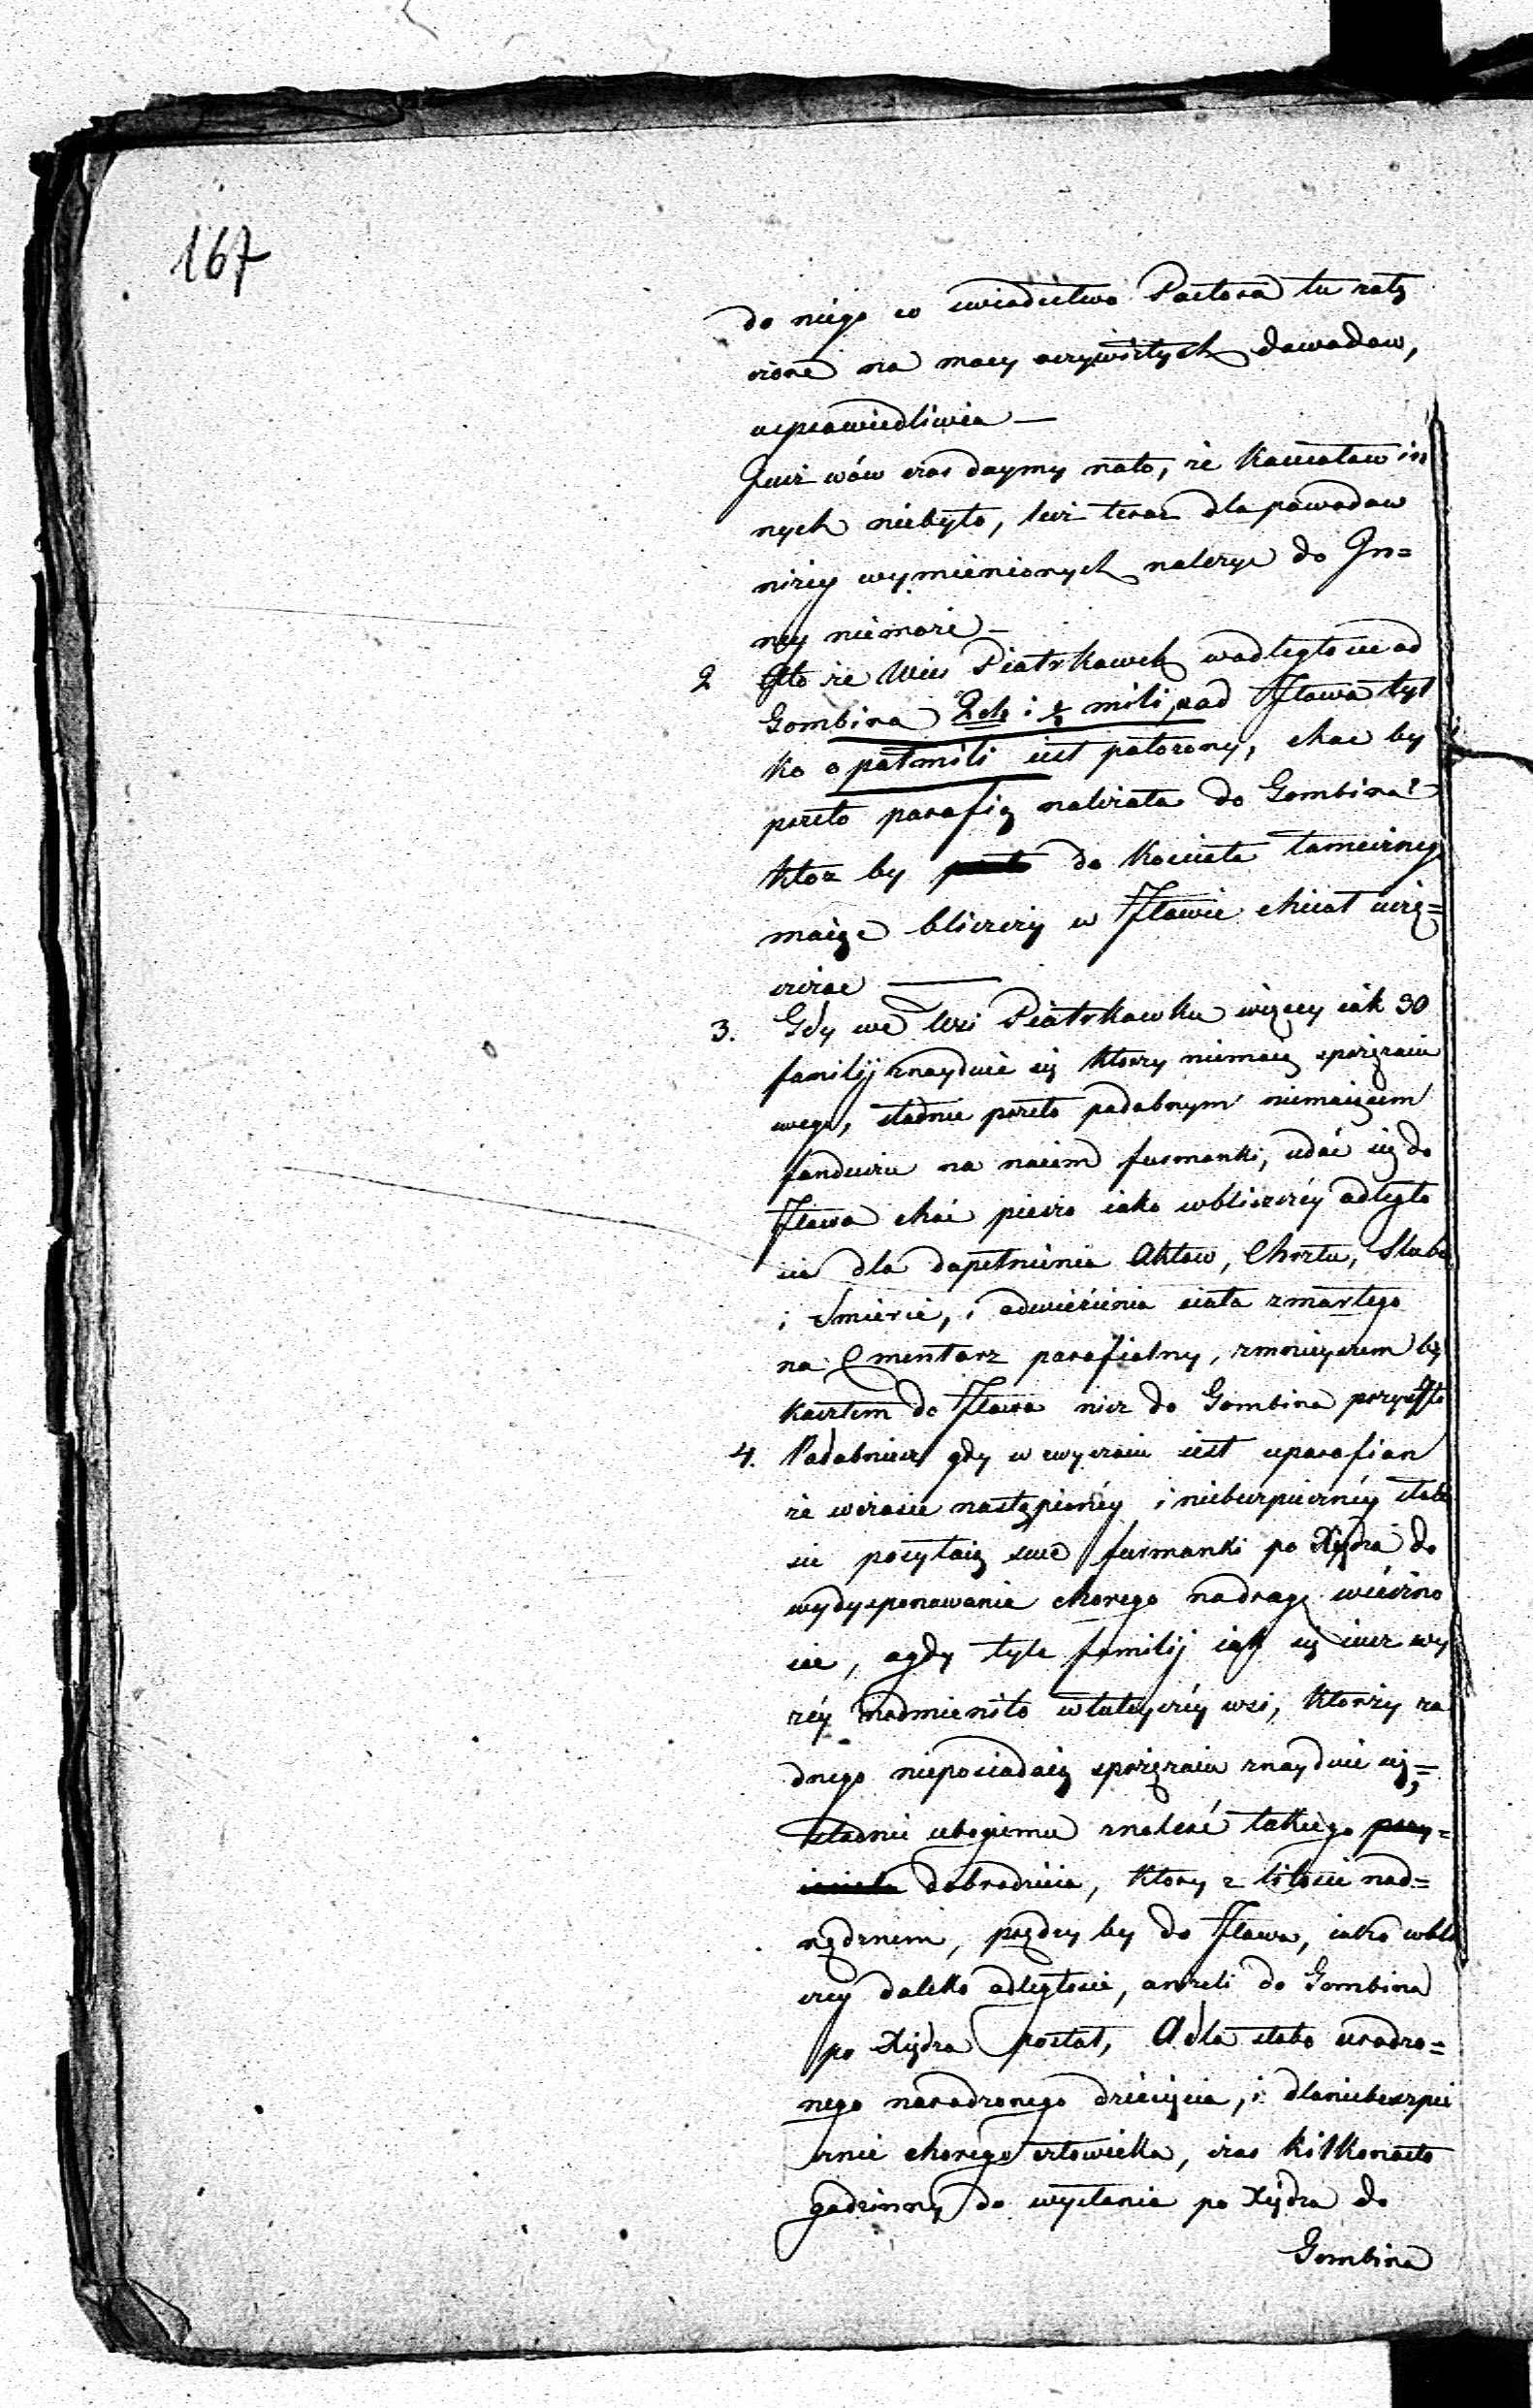 167
do niego co swiadectwo Pastora tu załą
czone na mocy oczywistych dowodow,
usprawiedliwia —
Już wów czas daymy nato, że Kościołow in
nych niebyło, lecz teraz dla powodow
niżey wymienionych należyć do In=
ney niemoże —
2 Oto że Wieś Piotrkowek w odległości od
Gombina 2ch i ½ mili, zad Iłowa tyl
ko o pół mili iest położony, choć by
przeto parafią należała do Gombina?
ktoz by przeto do Kościoła tameczneg
maiąc bliższy w Iłowie chciał uczę=
szczac —
3. Gdy we Wsi Piotrkowku więcey iak 30
familij znayduie się ktorzy niemaią sprzężaiu
swego, snadnie przeto podobnym niemaiącem
funduszu na naiem furmanki, udać się do
Iłowa choć pieszo iako w bliższéy odległo
ści dla dopełnienia Aktow, Chrztu, Slubu
i Smierci, i odwieźienia ciała zmarłego
na Cmentarz parafialny, zmnieyszem by
kosztem do Iłowa niz do Gombina przyszło
4. Podobniesz gdy w zwyczaiu iest uparafian
że w czasie nastąpionéy i niebezpiecznéy słabo
ści posyłaią swe furmanki po Xiędza do
wydysponowania chorego nadrogę wieczno
ści, a gdy tyle familij iak się iusz wy
zéy nadmieniło w tuteyszéy wsi, ktorży ża
dnego nieposiadaią sprzężaiu znayduie się,=
snadnie ubogiemu znaleść takiego przy=
iaciela dobrodzieia, ktory z litości nad=
nędznem, prędzy by do Iłowa, iako w bli
szey daleko odległości, anżeli do Gombina
po Xiędza posłał, A dla słabo urodzo=
nego narodzonego dziecięcia, i dla niebezpie
cznie chorego człowieka, czas kilkonasto
godzinny do wysłania po Xiędza do
Gombina